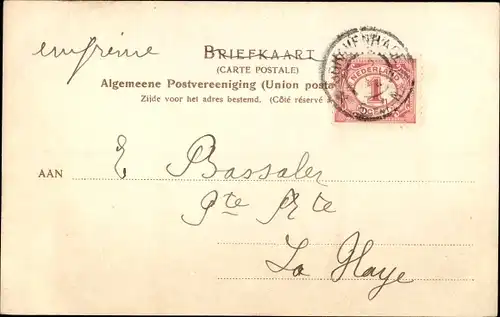 BRIEFKAART
(CARTE POSTALE)
Algemeene Postvereeniging (Union posta
Zijde voor het adres bestemd. (Côté réservé a
NEDERLAND
1
CENT
AAN E Bassaler
Pte Rte
La Haye